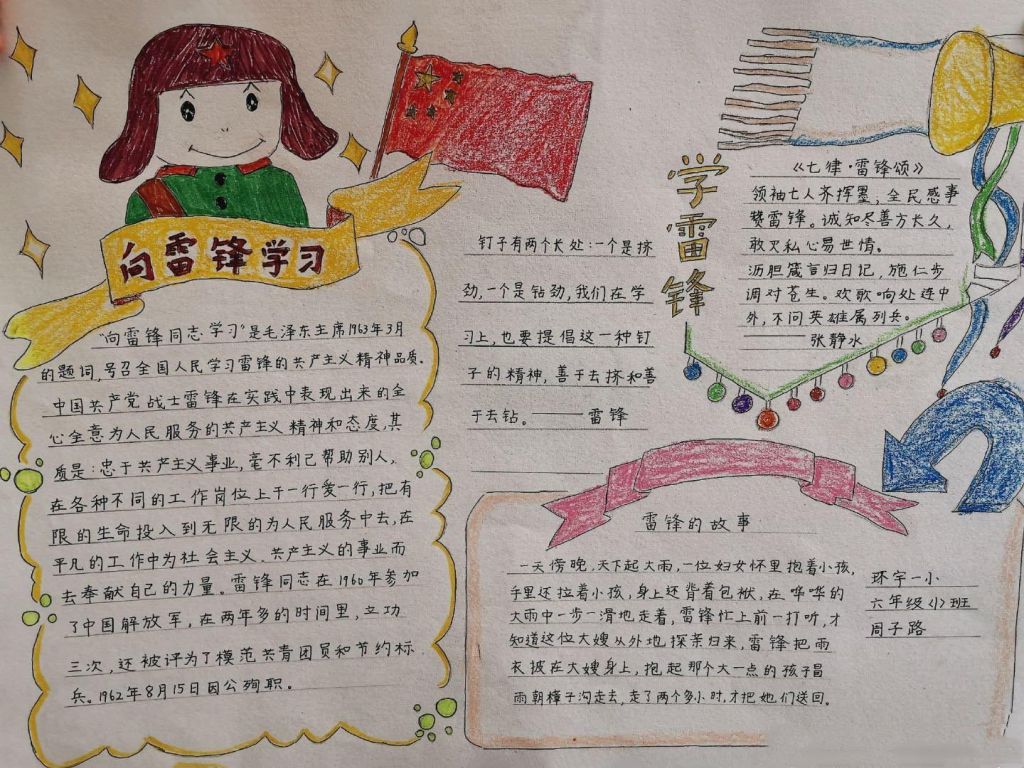 向雷锋学习
“向雷锋同志学习”是毛泽东主席1963年3月
的题词,号召全国人民学习雷锋的共产主义精神品质.
中国共产党战士雷锋在实践中表现出来的全
心全意为人民服务的共产主义精神和态度,其
质是:忠于共产主义事业,毫不利己帮助别人,
在各种不同的工作岗位上干一行爱一行,把有
限的生命投入到无限的为人民服务中去,在
平凡的工作中为社会主义、共产主义的事业而
去奉献自己的力量。雷锋同志在1960年参加
了中国解放军,在两年多的时间里,立功
三次,还被评为了模范共青团员和节约标
兵。1962年8月15日因公殉职。
钉子有两个长处:一个是挤
劲,一个是钻劲,我们在学
习上,也要提倡这一种钉
子的精神,善于去挤和善
于去钻。——雷锋
学雷锋
《七律·雷锋颂》
领袖七人齐挥墨,全民感事
赞雷锋。诚知尽善方长久,
敢灭私心易世情。
沥胆箴言归日记,施仁步
调对苍生。欢歌响处连中
外,不问英雄属列兵。
——张静水
雷锋的故事
一天傍晚,天下起大雨,一位妇女怀里抱着小孩,
手里还拉着小孩,身上还背着包袱,在哗哗的
大雨中一步一滑地走着,雷锋忙上前一打听,才
知道这位大嫂从外地探亲归来,雷锋把雨
衣披在大嫂身上,抱起那个大一点的孩子冒
雨朝樟子沟走去,走了两个多小时,才把她们送回。
环宇一小
六年级(1)班
周子路